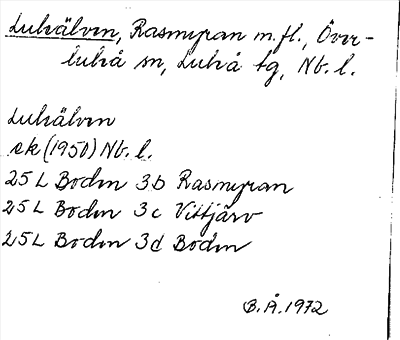 Luleälven, Rasmyran m.fl., Över-
luleå sn, Luleå tg, Nb. l.
Luleälven
ek (1950) Nb. l.
25 L Boden 3b Rasmyran
25 L Boden 3c Vittjärv
25 L Boden 3d Boden
B.Å. 1972